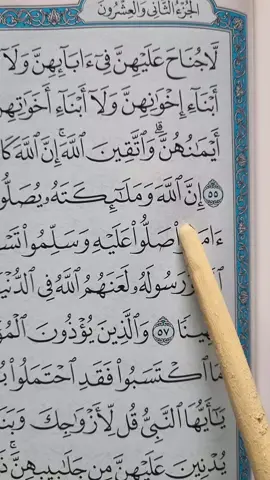 الجزء الثاني والعشرون
لَّا جُنَاحَ عَلَيْهِنَّ فِىٓ ءَابَآئِهِنَّ وَلَآ
أَبْنَآءِ إِخْوَٰنِهِنَّ وَلَآ أَبْنَآءِ أَخَوَٰتِهِنَّ
أَيْمَٰنُهُنَّ ۗ وَٱتَّقِينَ ٱللَّهَ ۚ إِنَّ ٱللَّهَ كَا
٥٥ إِنَّ ٱللَّهَ وَمَلَٰٓئِكَتَهُۥ يُصَلُّو
ءَام صَلُّوا۟ عَلَيْهِ وَسَلِّمُوا۟ تَس
وَرَسُولَهُۥ لَعَنَهُمُ ٱللَّهُ فِى ٱلدُّنْيَ
ينًا ٥٧ وَٱلَّذِينَ يُؤْذُونَ ٱلْمُؤ
مَا ٱكْتَسَبُوا۟ فَقَدِ ٱحْتَمَلُوا۟ بُ
يَٰٓأَيُّهَا ٱلنَّبِىُّ قُل لِّأَزْوَٰجِكَ وَبَنَ
يُدْنِينَ عَلَيْهِنَّ مِن جَلَٰبِيبِهِنَّ ۚ ذَ